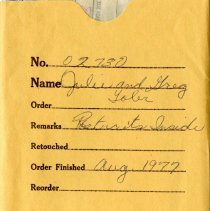 No. 02730
Name Julie and Greg
Order
Remarks Portraits Inside
Retouched
Order Finished Aug 1977
Reorder